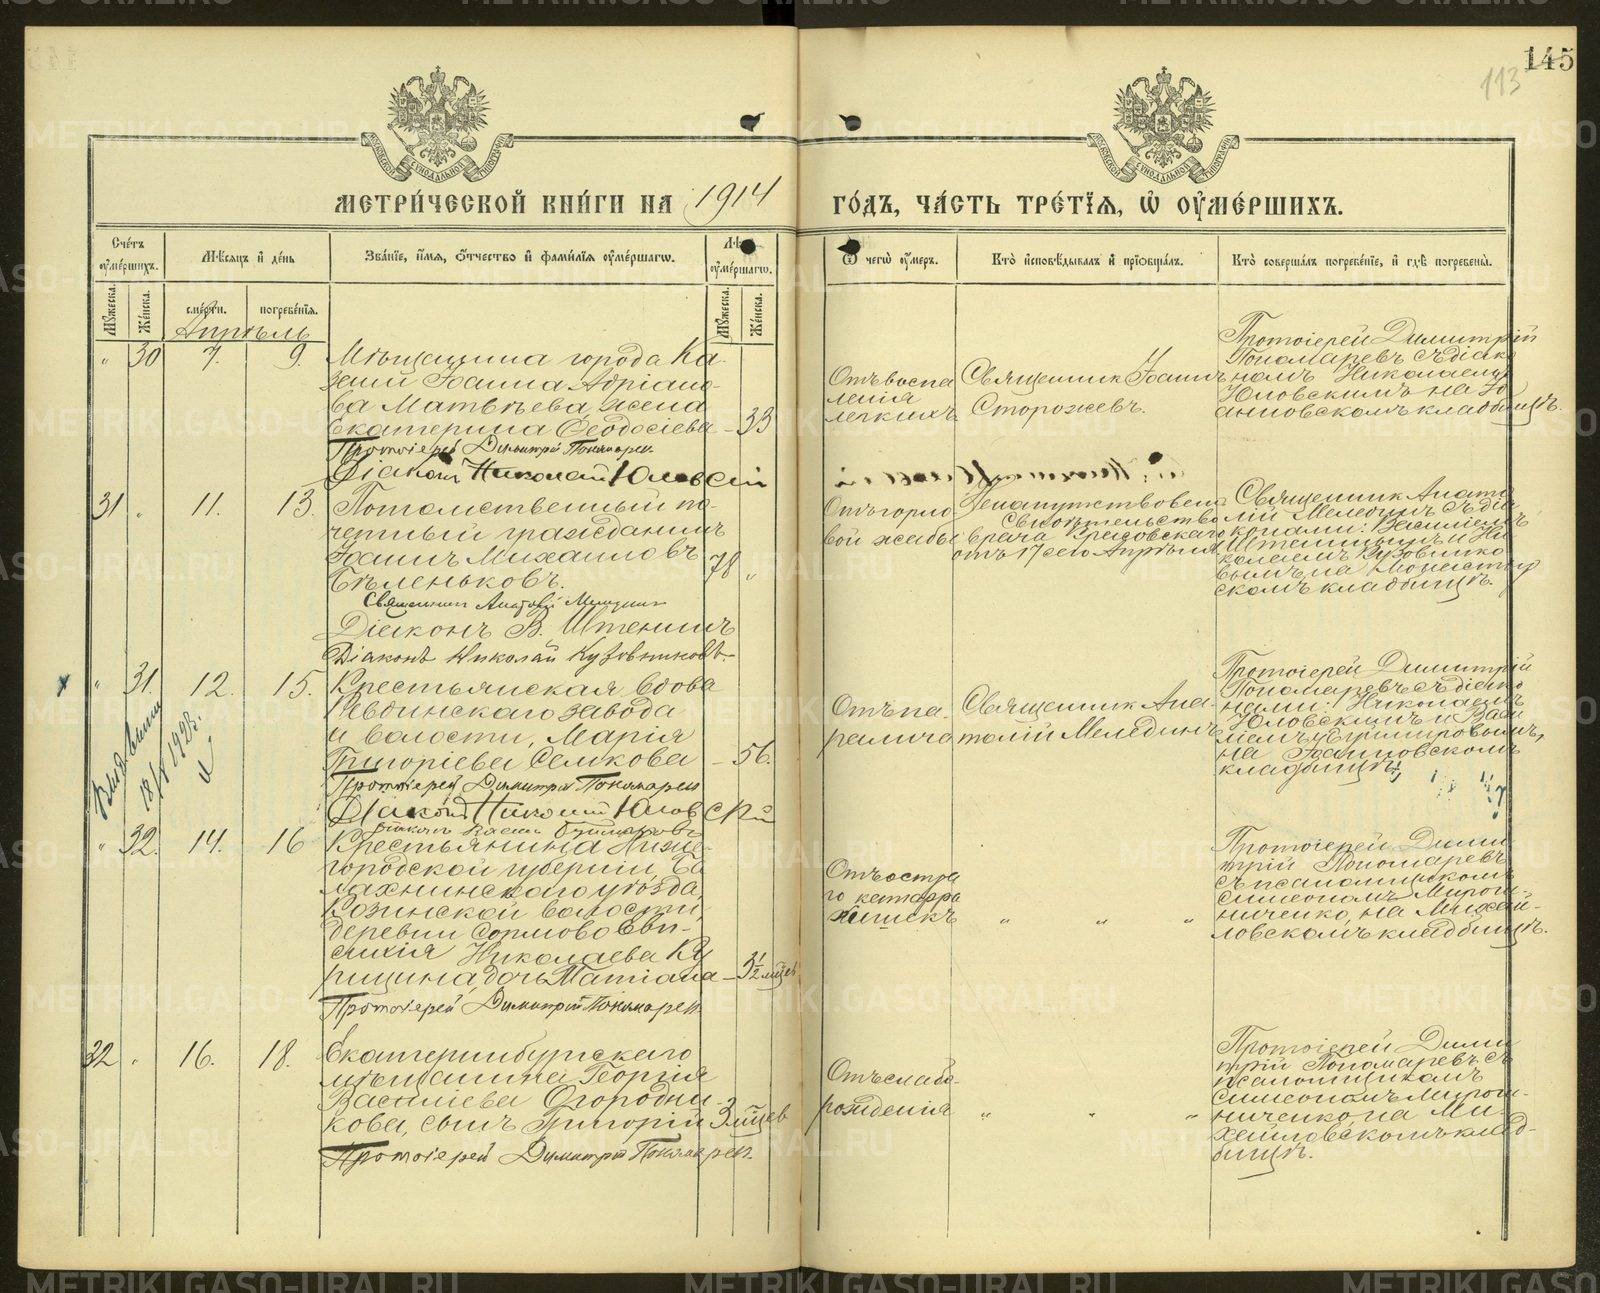 145
113
МЕТРИ́ЧЕСКОЙ КНИ́ГИ НА 1914 ГО́ДЪ, ЧА́СТЬ ТРЕ́ТІѦ, Ѡ ОУМЕ́РШИХЪ.
Счétъ оумéршихъ.
Мѣ́сяцъ и дéнь
Звáніе, и́мя, о́тчество и фами́лія оумéршагѡ.
Лѣ оумéршагѡ.
Ѿ чегѡ̀ оу́меръ.
Ктò исповѣ́дывалъ и пріобщáлъ.
Ктò совершáлъ погребéніе, и гдѣ̀ погребены̀.
Мꙋжеска.
Жéнска.
смéрти.
погребéнія.
Мꙋжеска.
Жéнска.
Апрѣль
" 30 7. 9.
Мѣщанина города Ка-
зани Іоанна Адріано-
ва Матвѣева, жена
Екатерина Ѳеодосіева – 33
Протоіерей Димитрій Пономарев
Діаконъ Николай Юловскій
Отъ воспа
ленія
легкихъ
Священник Іоаннъ
Сторожевъ.
Протоіерей Димитрій
Пономаревъ съ діако
номъ Николаемъ
Юловскимъ на Іо
анновскомъ кладбищѣ.
31 " 11. 13.
Потомственный по-
четный гражданинъ
Іоаннъ Михаиловъ
Бѣленьковъ. 78 "
Священник Анатолій Меледин
Діаконъ В. Штенинъ
Діаконъ Николай Кузовниковъ
Отъ горло-
вой жабы
Свидѣтельство
врача
отъ 17 сего Апрѣля
Священник Анато
лій Мелединъ съ діа
конами: Василіемъ
Штенинымъ и Ни
колаемъ Кузовнико
вымъ, на Монастыр
скомъ кладбищѣ.
" 31. 12. 15.
Крестьянская вдова
Ревдинскаго завода
и волости, Марія
Григоріева Семкова – 56.
Протоіерей Димитрій Пономарев
Діаконъ Николай Юловскій
18/ 1923.
Отъ па-
ралича
Священник Ана-
толій Мелединъ
Протоіерей Димитрій
Пономаревъ съ діако
нами: Николаемъ
Юловскимъ и Васи
ліемъ
на Іоанновскомъ
кладбищѣ.
" 32. 14. 16
Крестьянина Ниже-
городской губерніи, Ба
лахнинскаго уѣзда,
Козинской волости,
деревни Сормово
Николаева Ку
рицина, дочь Татіана – 3 1/2 мѣсев
Протоіерей Димитрій Пономарев
Отъ остра
го катарра
кишекъ
" " "
Протоіерей Дими
трій Пономаревъ
съ псаломщикомъ
Симеономъ Мирош-
ниченко, на Михай-
ловскомъ кладбищѣ.
32 " 16. 18.
Екатеринбургскаго
мѣщанина Георгія
Василіева Огородни-
кова, сынъ Григорій 3 мѣцев
Протоіерей Димитрій Пономарев.
Отъ слабо-
рожденія
" " "
Протоіерей Дими
трій Пономаревъ съ
псаломщикомъ
Симеономъ Мирош-
ниченко на Ми-
хайловскомъ клад-
бищѣ.
METRIKI.GASO-URAL.RU